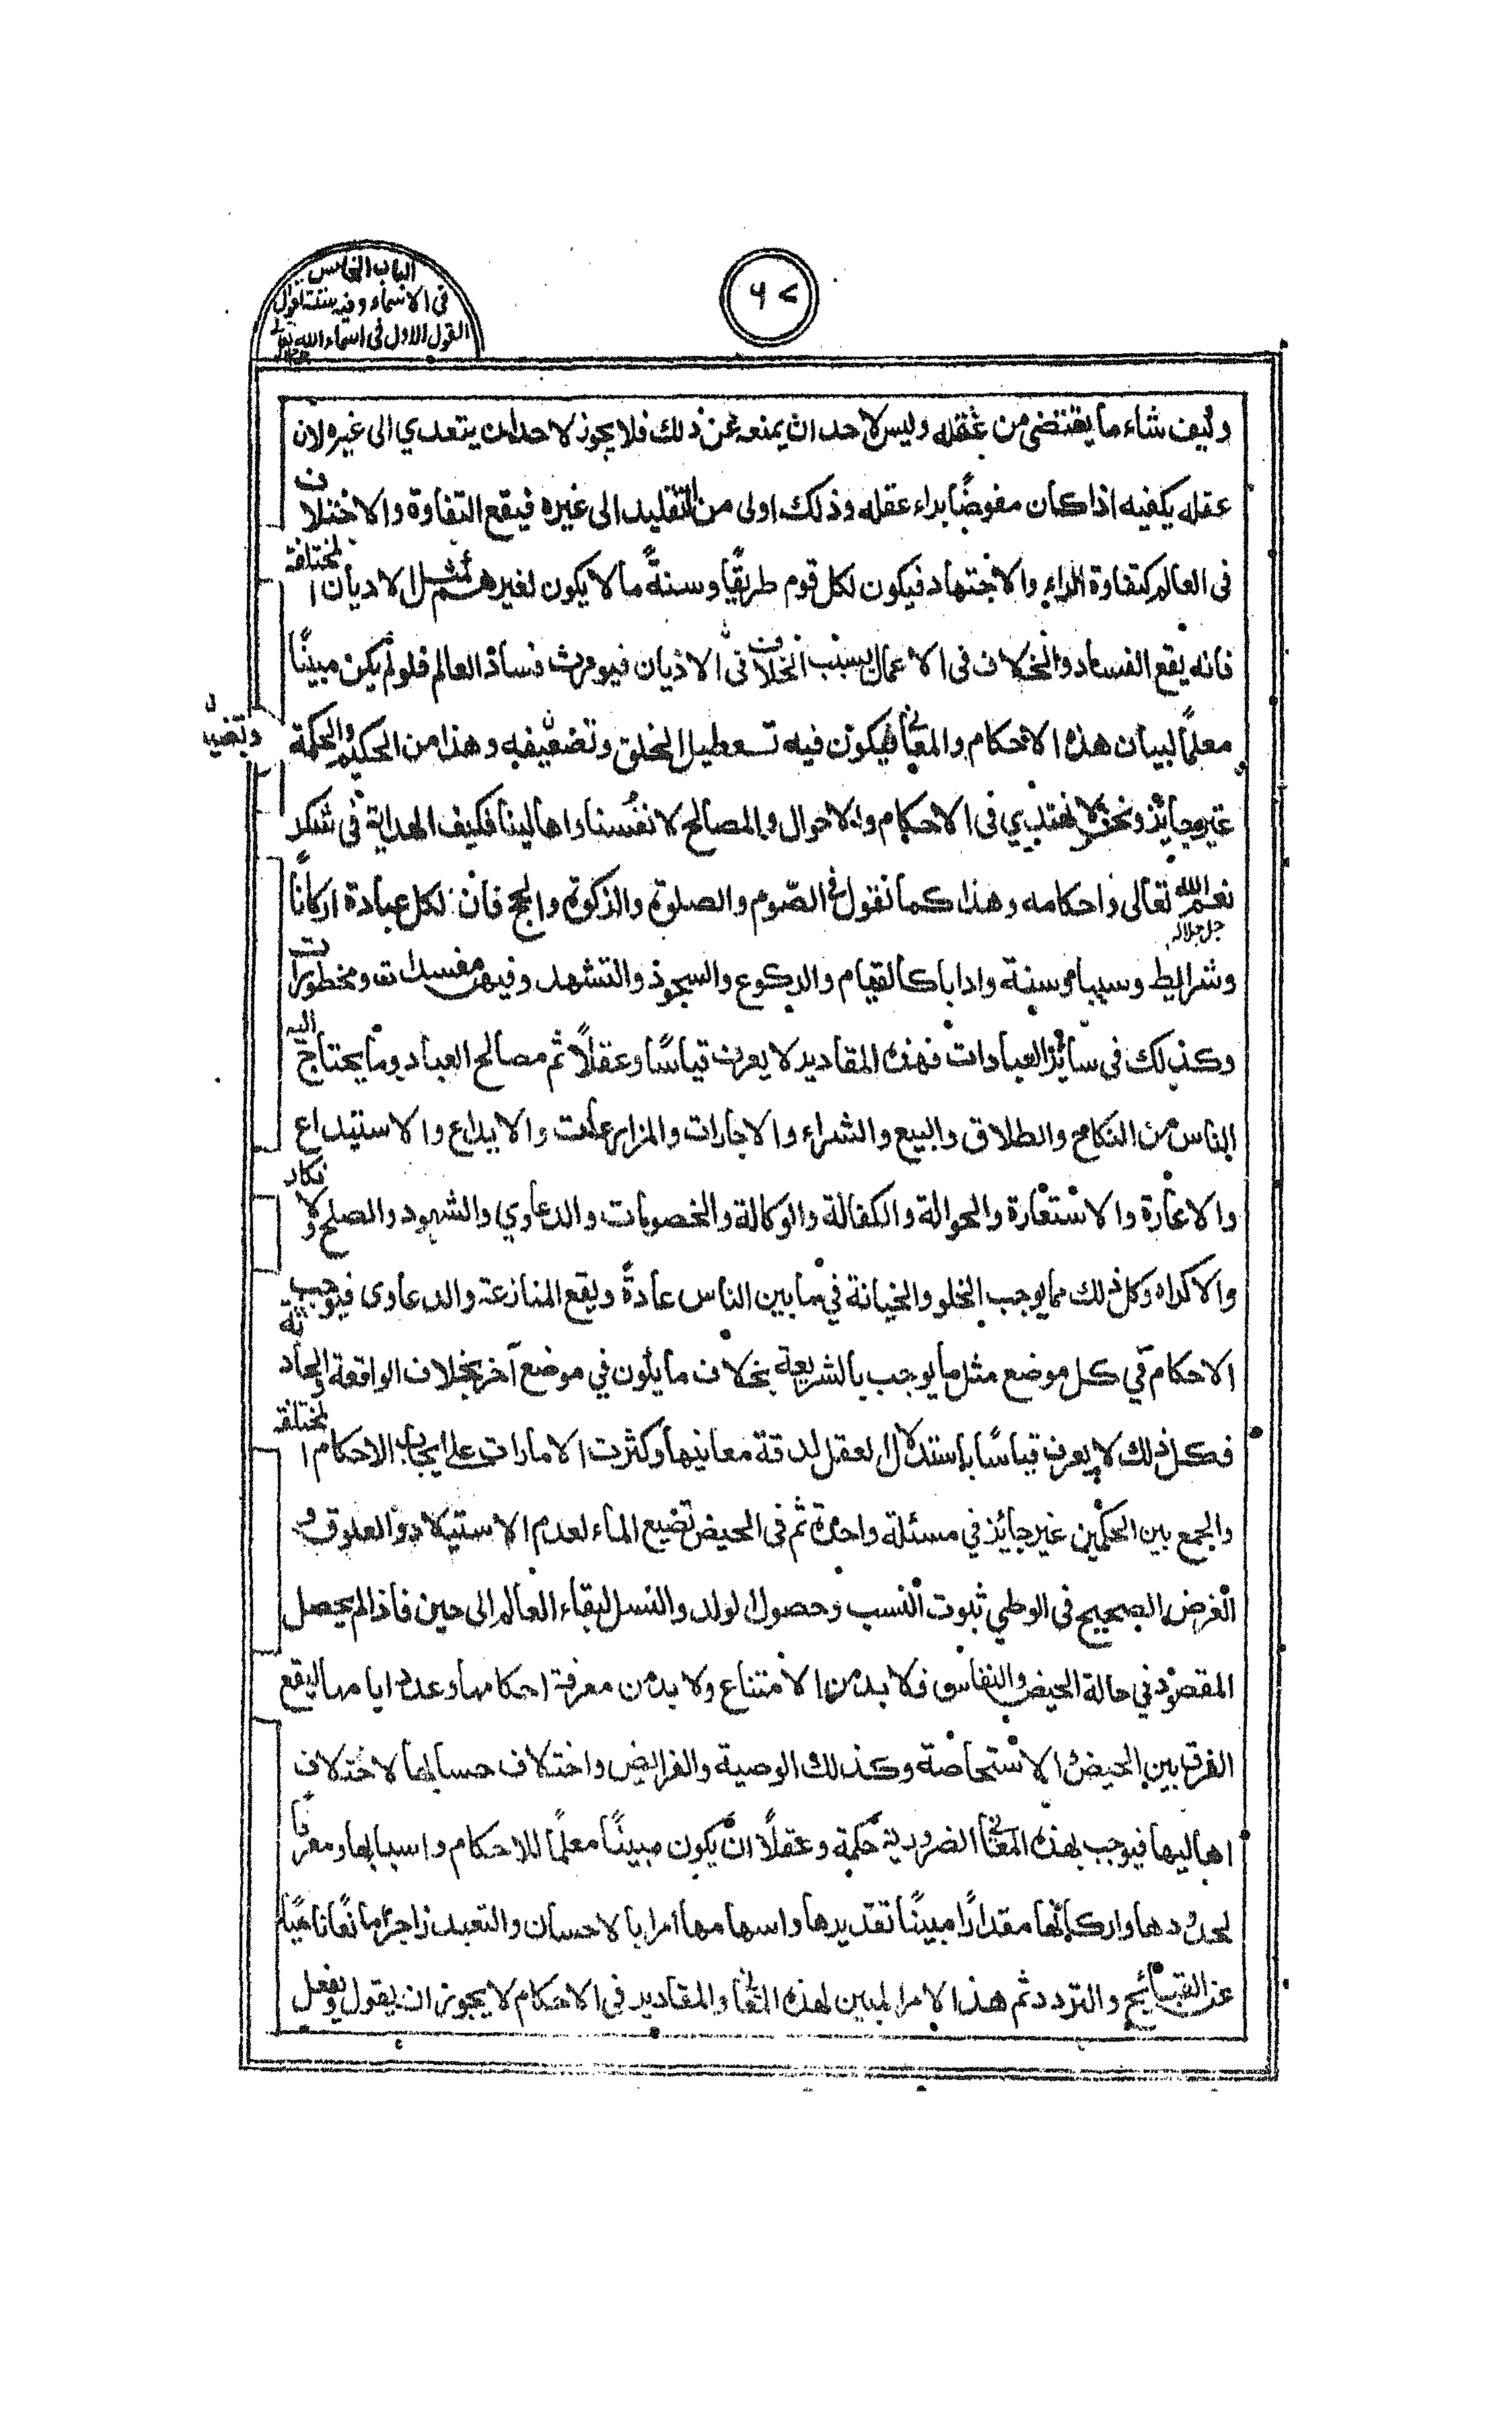 الباب الخامس
فى الاسماء وفيه ستة اقوال
القول الاول فى اسماء الله تعالى
٦٢
وكيف شاء ما يقتضى من عقله وليس لاحد ان يمنعه عن ذلك فلا يجوز لاحد ان يتعدي الى غيره لان
عقله يكفيه اذا كان مفوضًا براء عقله وذلك اولى من التقليد الى غيره فيقع التفاوة والاختلاف
فى العالم كتفاوة الراء والاجتهاد فيكون لكل قوم طريقًا وسنةً ما لا يكون لغيرهم مثل الاديان المختلفة
فانه يقع الفساد والخلاف فى الاعمال بسبب الخلاف فى الاديان فيورث فساد العالم فلو لم يكن مبينًا
معلمًا لبيان هذه الاحكام والمعانى فيكون فيه تعطيل الخلق وتضعيفه وهذا من الحكيم والحكمة
غير جائز ونحن لا نهتدي فى الاحكام والاحوال والمصالح لانفسنا واهالينا فكيف الهداية فى شكر
نعم الله جل جلاله تعالى واحكامه وهذا كما نقول فى الصّوم والصلوة والزكوة والحج فان لكل عبادة اركانًا
وشرايط وسببا وسنة وادابا كالقيام والركوع والسجود والتشهد وفيها مفسدات ومخطورات
وكذلك فى سائر العبادات فهذه المقادير لا يعرف قياسًا وعقلاً ثم مصالح العباد وما يحتاج اليه
الناس من النكاح والطلاق والبيع والشراء والاجارات والمزارعات والايداع والاستيداع
والاعارة والاستعارة والحوالة والكفالة والوكالة والخصومات والدعاوي والشهود والصلح ولانكار
والاكراه وكل ذلك مما يوجب الخلو والخيانة في ما بين الناس عادةً ويقع المنازعة والدعاوى فيوجب
الاحكام في كل موضع مثل ما يوجب بالشريعة بخلاف ما يكون في موضع آخر بخلاف الواقعة والحادثة
فكل ذلك لا يعرف قياسًا باستدلال العقل لدقة معانيها وكثرت الامارات على ايجاب الاحكام المختلفة
والجمع بين الحكمين غير جائز في مسئلة واحدة ثم فى الحيض تضيع الماء لعدم الاستيلاد والعلوق و
الغرض الصحيح فى الوطي ثبوت النسب وحصول الولد والنسل لبقاء العالم الى حين فاذا لم يحصل
المقصود في حالة الحيض والنفاس فلا بد من الامتناع ولا بد من معرفة احكامها وعدد ايامها ليقع
الفرق بين الحيض الاستحاضة وكذلك الوصية والفرايض واختلاف حسابها لاختلاف
اهاليها فيوجب بهذه المعانى الضرورية حكمة وعقلاً ان يكون مبينًا معلمًا للاحكام واسبابها ومعرفًا
لحدودها واركانها مقدارًا مبينًا تقديرها واسهامها امرا بالاحسان والتعبد زاجرا مانعًا ناهيًا
عن القبائح والتردد ثم هذا الامر المبين لهذه المعانى والمقادير فى الاحكام لا يجوز ان يقول ويفعل